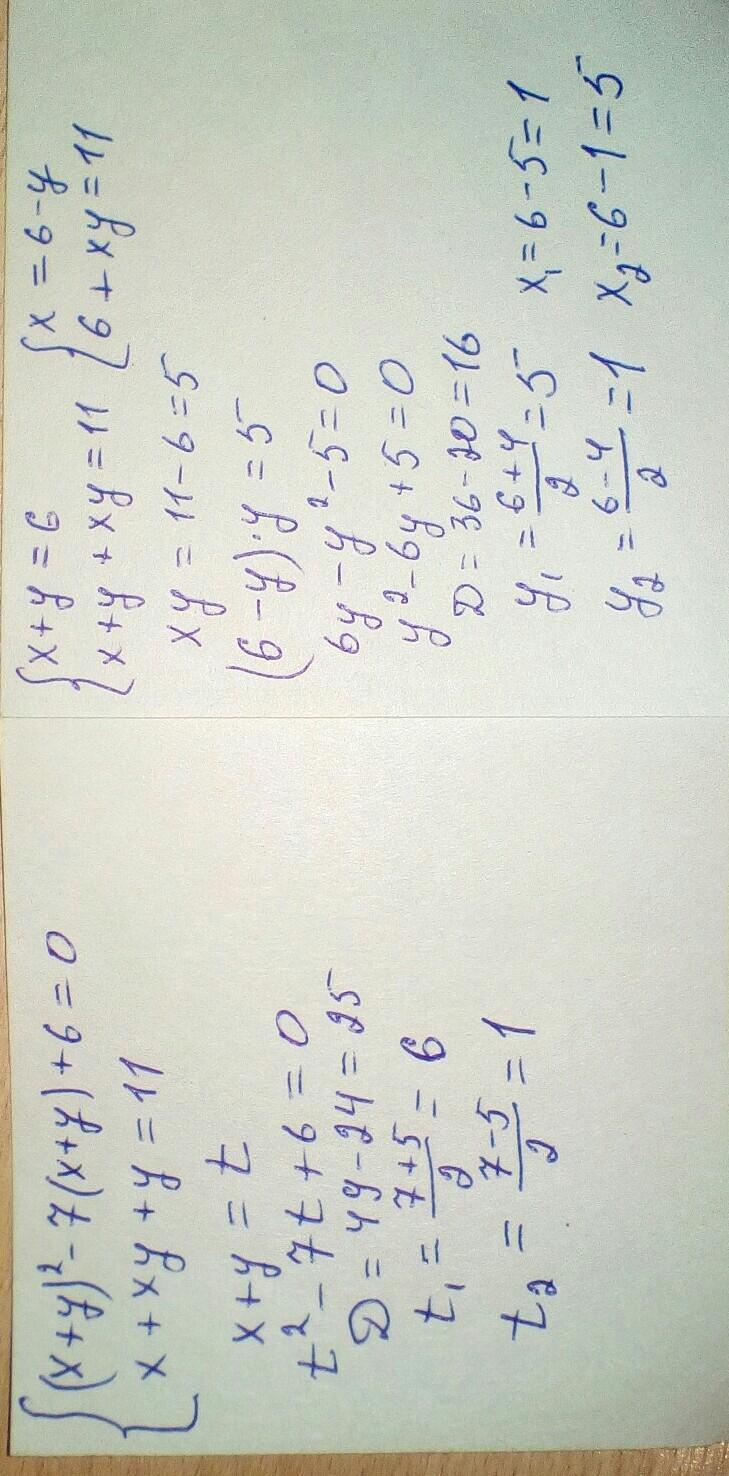 {(x+y)² - 7(x+y) + 6 = 0
{x + xy + y = 11
x+y = t
t² - 7t + 6 = 0
D = 49 - 24 = 25
t₁ = (7+5)/2 = 6
t₂ = (7-5)/2 = 1
{x+y = 6 {x = 6-y
{x+y + xy = 11 {6 + xy = 11
xy = 11 - 6 = 5
(6-y)·y = 5
6y - y² - 5 = 0
y² - 6y + 5 = 0
D = 36 - 20 = 16
y₁ = (6+4)/2 = 5 x₁ = 6-5 = 1
y₂ = (6-4)/2 = 1 x₂ = 6-1 = 5